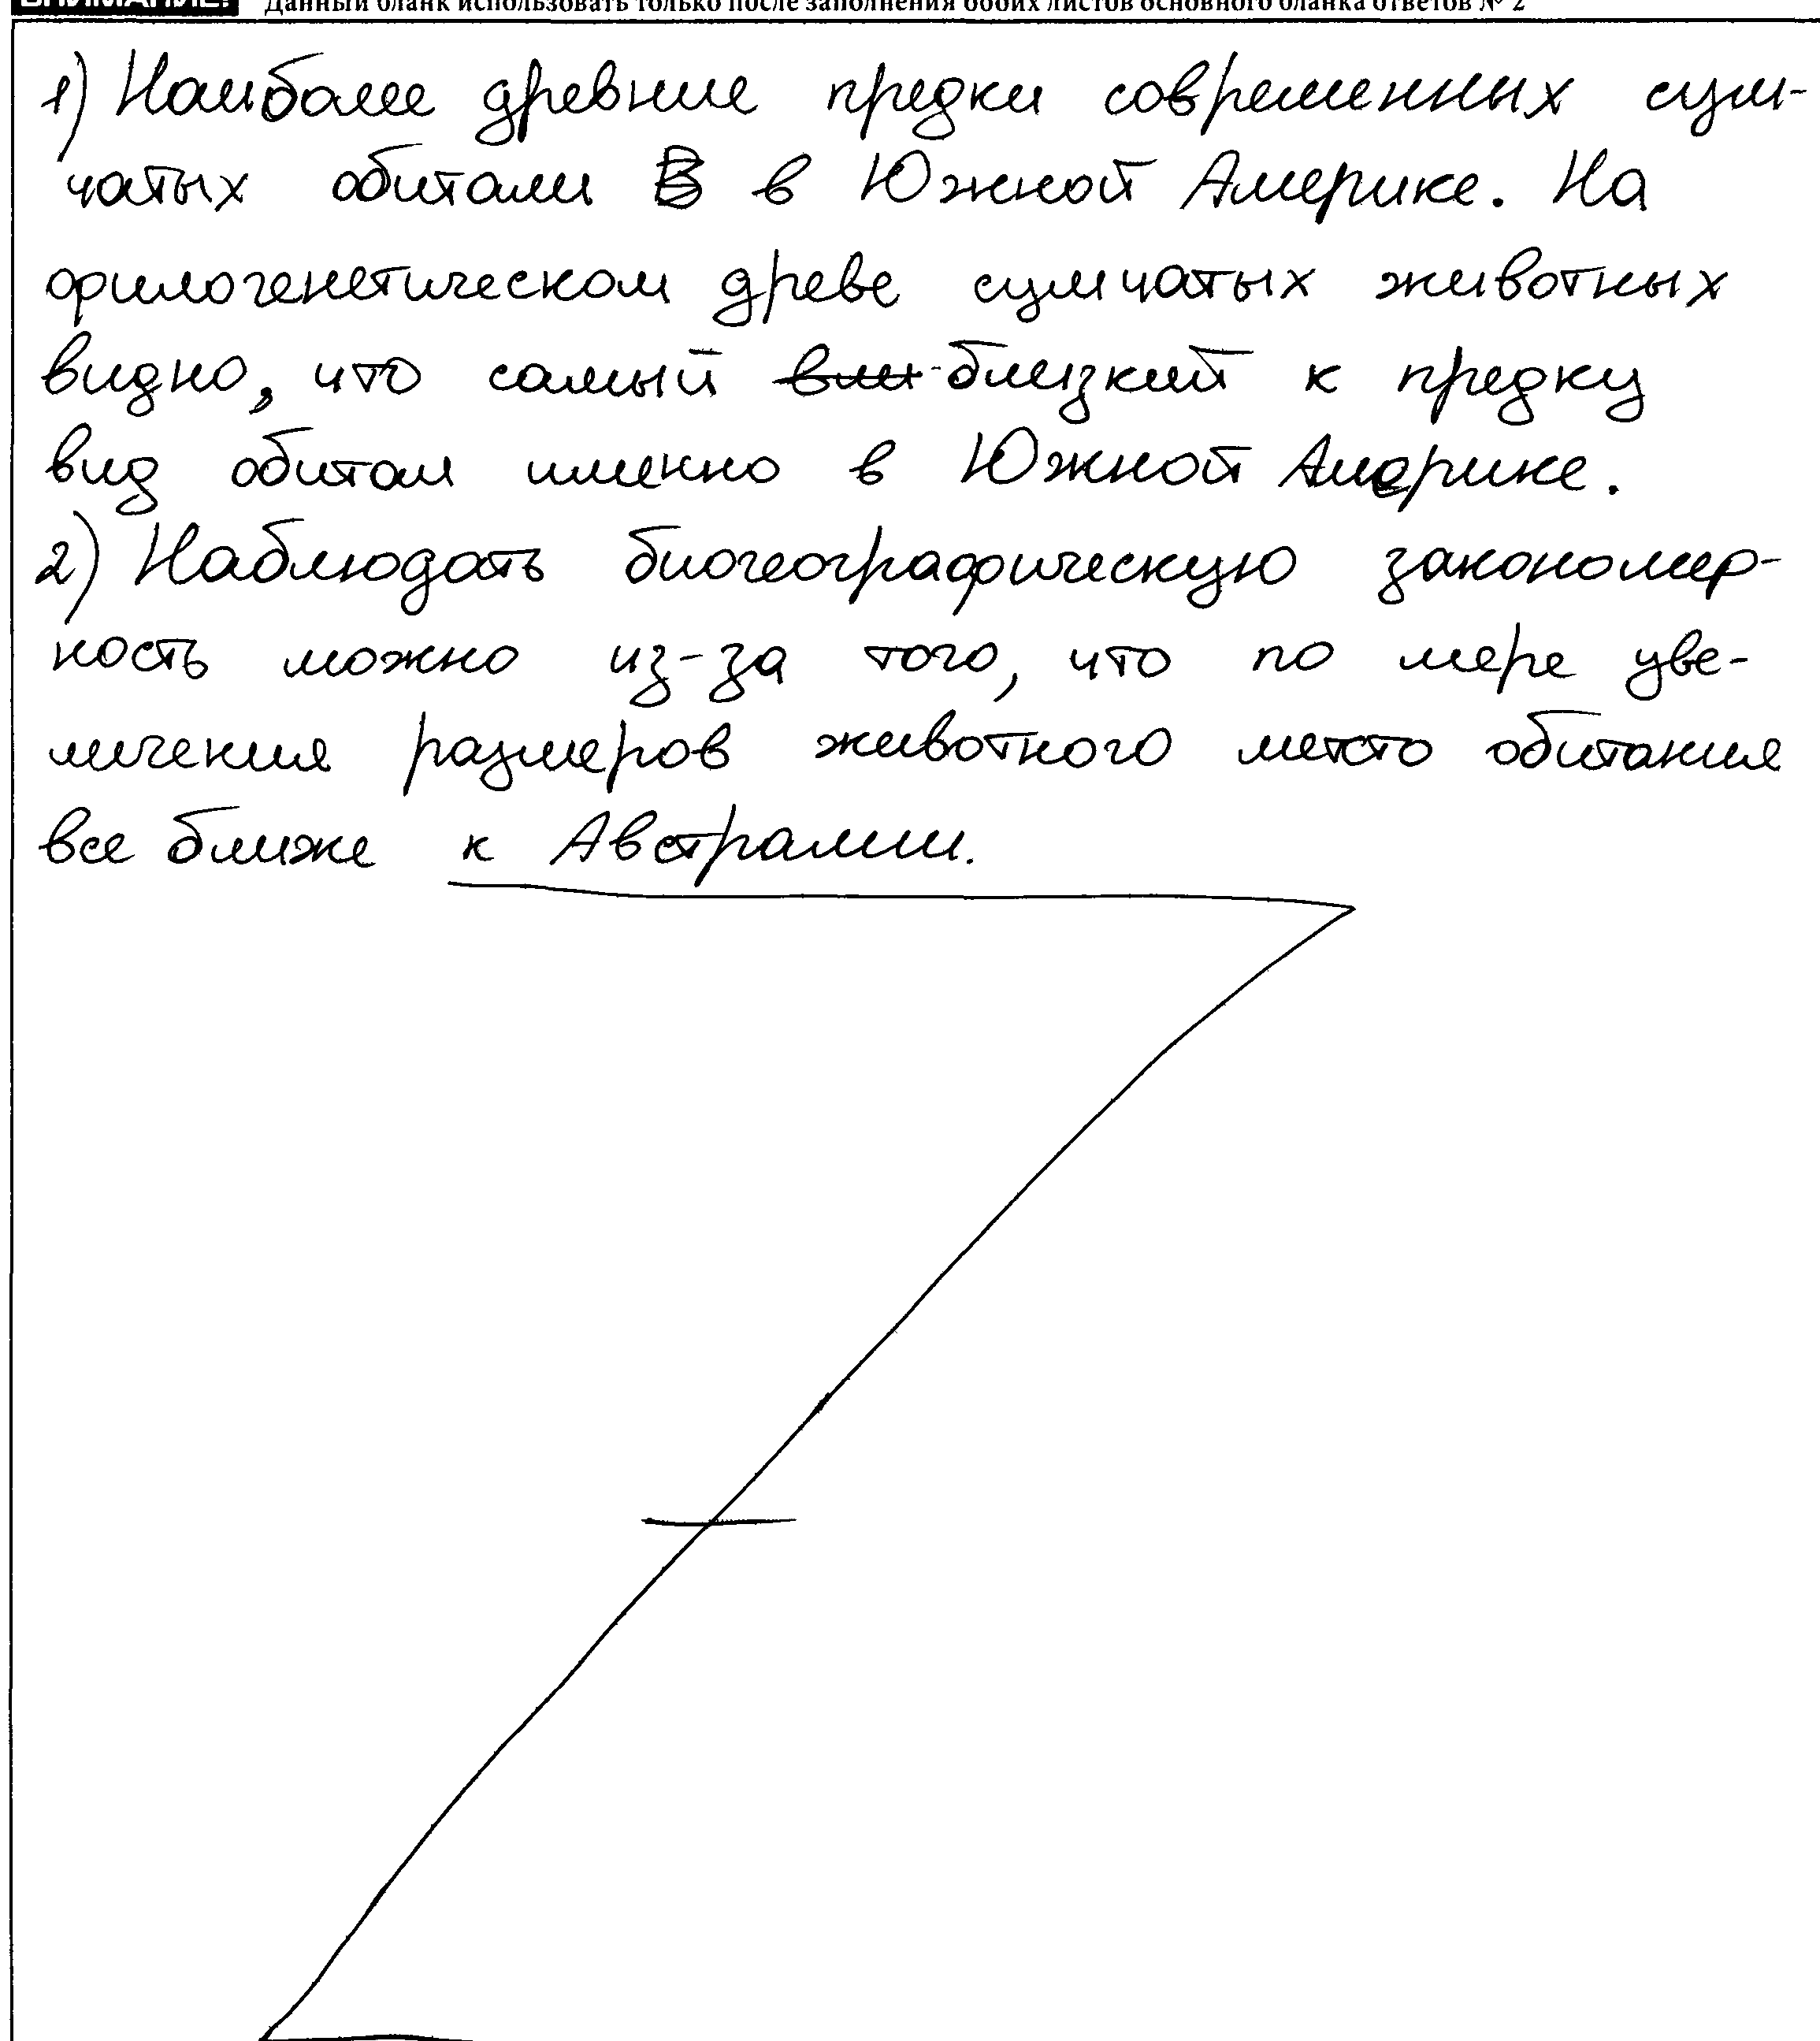 ВНИМАНИЕ! Данный бланк использовать только после заполнения обоих листов основного бланка ответов № 2
1) Наиболее древние предки современных сум-
чатых обитали в в Южной Америке. На
филогенетическом древе сумчатых животных
видно, что самый вли близкий к предку
вид обитал именно в Южной Америке.
2) Наблюдать биогеографическую закономер-
ность можно из-за того, что по мере уве-
личения размеров животного место обитания
все ближе к Австралии.